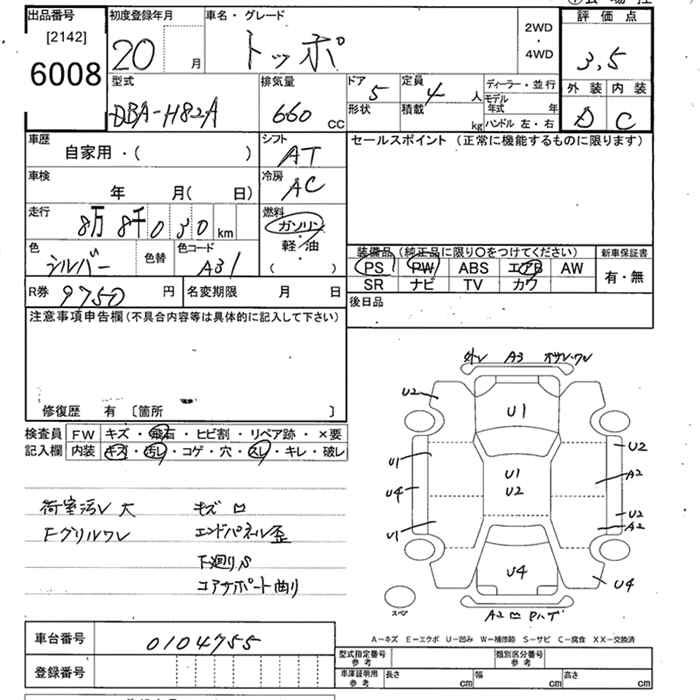 出品番号 初度登録年月 車名・グレード 評価点
[2142] 20 月 トッポ 2WD・4WD 3,5
6008
型式 排気量 ドア 5 定員 4 人 ディーラー・並行 外装 内装
DBA-H82A 660 CC 形状 積載 kg モデル年式 年 D C
ハンドル 左・右
車歴 シフト セールスポイント (正常に機能するものに限ります)
自家用・( ) AT
車検 冷房
年 月( 日) AC
走行 燃料
8万 8千 0 3 0 km ガソリン
軽・油
( )
色 シルバー 色替 色コード A31
装備品 (純正品に限り○をつけてください) 新車保証書
PS PW ABS エアB AW 有・無
SR ナビ TV カワ
R券 9750 円 名変期限 月 日 後日品
注意事項申告欄 (不具合内容等は具体的に記入して下さい)
修復歴 有 〔箇所 〕
検査員 FW キズ・飛石・ヒビ割・リペア跡・×要
記入欄 内装 キズ・汚レ・コゲ・穴・スレ・キレ・破レ
荷室汚レ 大 キズ
Fグリルワレ エンドパネル歪
下廻りS
コアサポート曲り
A3
U2
U1
U1 U2
U1
U4 U2 A2
U2
U1 A2
U4 U4
スペ
A2
A－キズ E－エクボ U－凹み W－補修跡 S－サビ C－腐食 XX－交換済
車台番号 0104755
登録番号
型式指定番号 参考 類別区分番号 参考
車庫証明用 参考 長さ cm 幅 cm 高さ cm